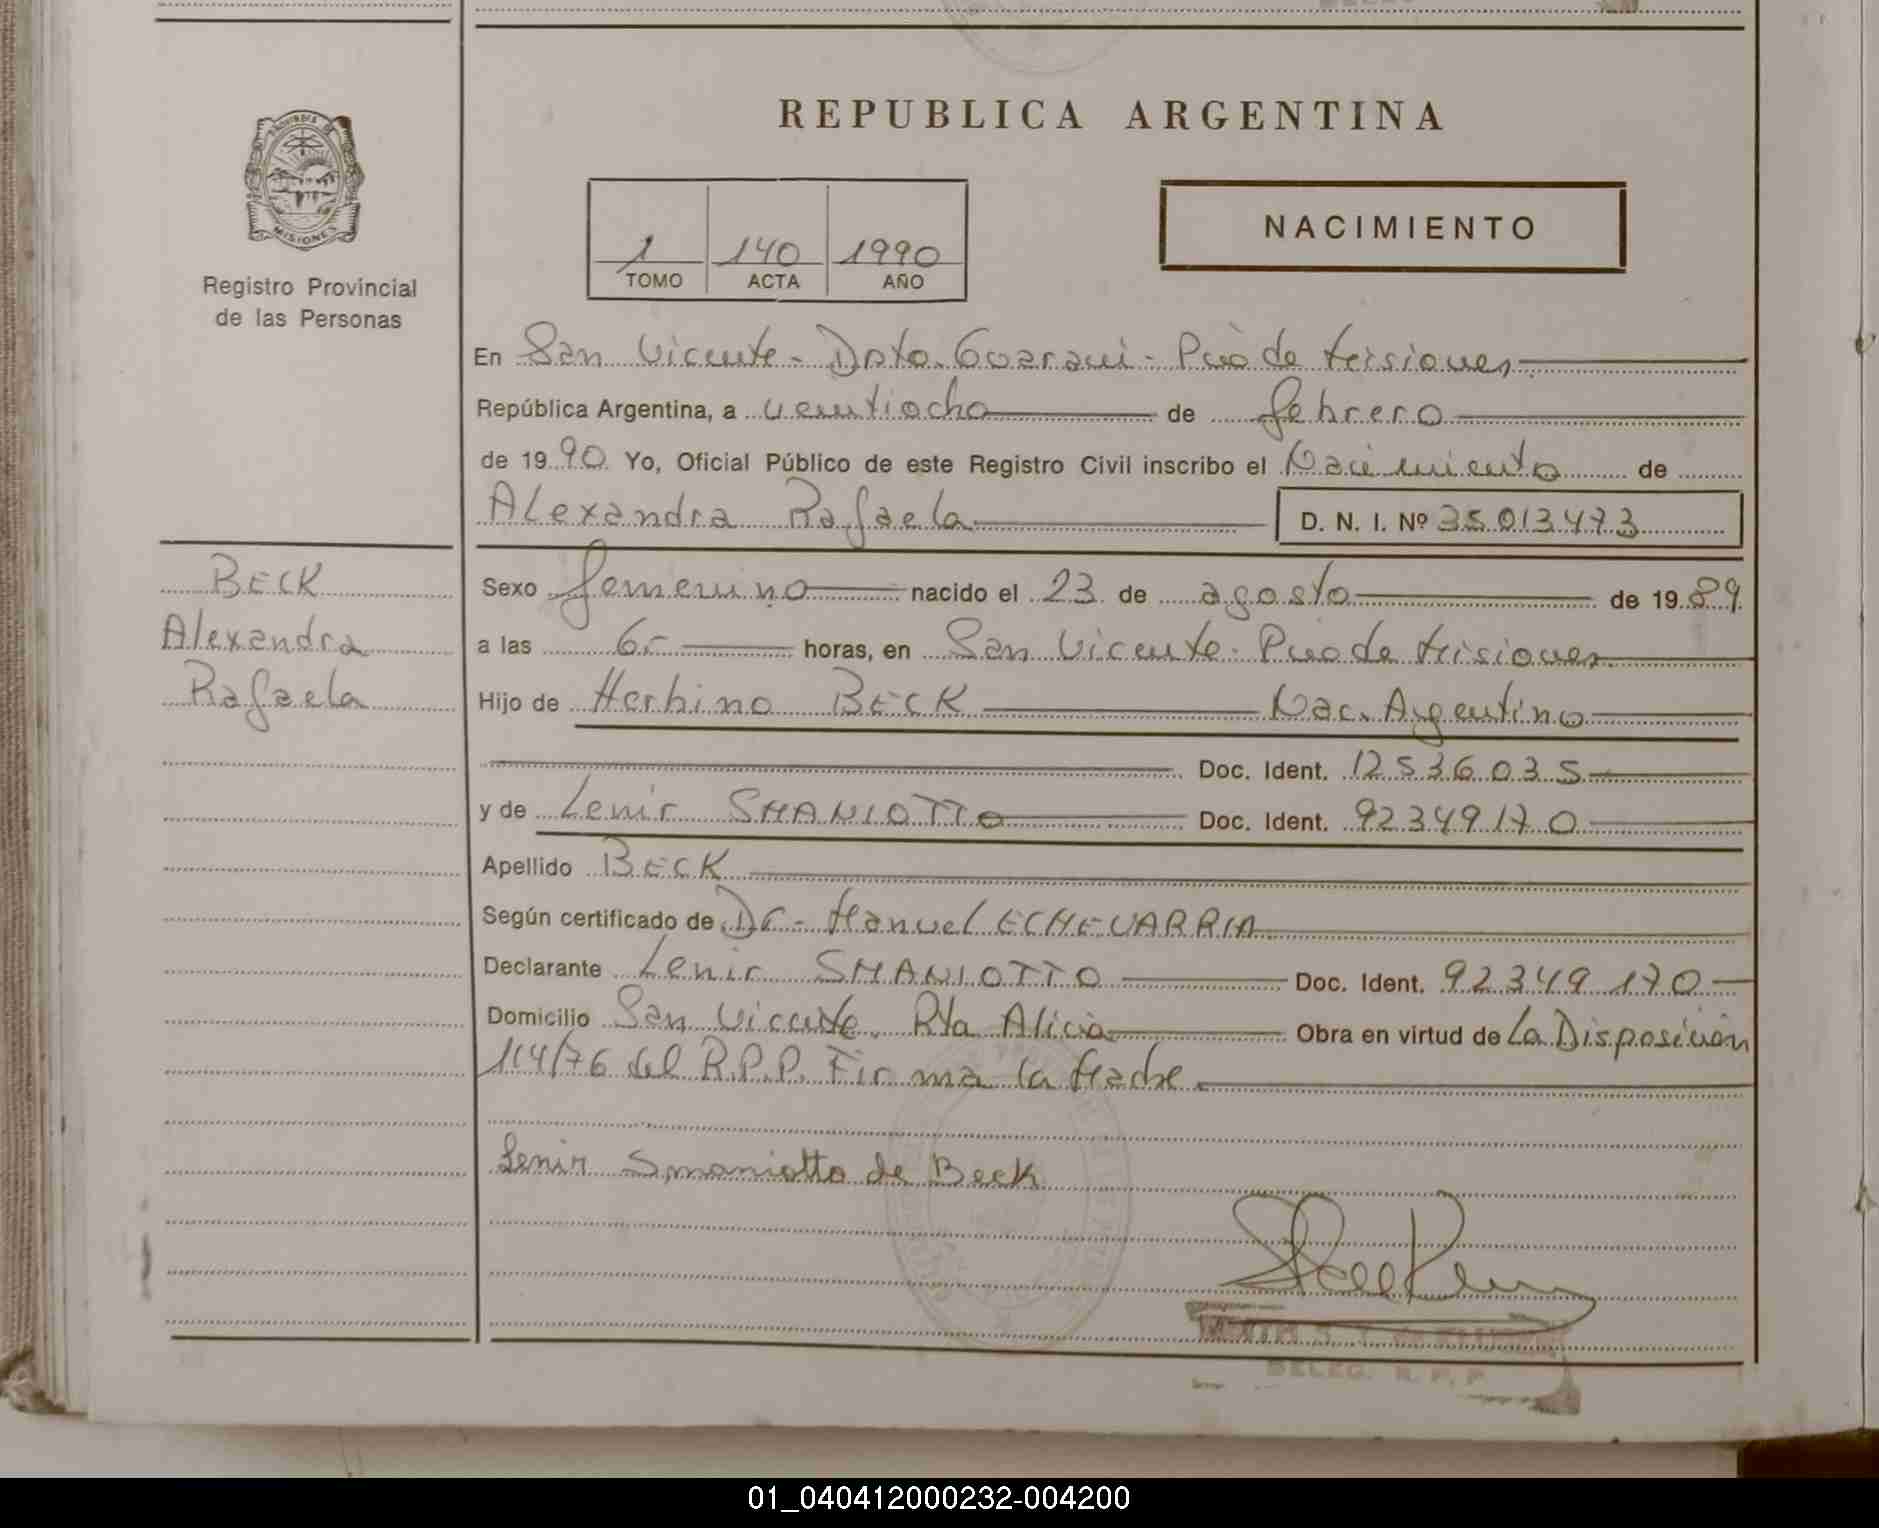 REPUBLICA ARGENTINA
PROVINCIA DE
MISIONES
Registro Provincial
de las Personas
1 140 1990
TOMO ACTA AÑO
NACIMIENTO
En San Vicente - Dpto. Guarani - Pcia de Misiones
República Argentina, a veintiocho de febrero
de 1990 Yo, Oficial Público de este Registro Civil inscribo el Nacimiento de
Alexandra Rafaela D. N. I. Nº 35013473
BECK
Alexandra
Rafaela
Sexo femenino nacido el 23 de agosto de 1989
a las 6,- horas, en San Vicente - Pcia de Misiones
Hijo de Herbino BECK Nac. Argentino
Doc. Ident. 12536035
y de Lenir SMANIOTTO Doc. Ident. 92349170
Apellido BECK
Según certificado de Dr - Manuel ECHEVARRIA
Declarante Lenir SMANIOTTO Doc. Ident. 92349170
Domicilio San Vicente. Pta Alicia Obra en virtud de La Disposición
114/76 del R.P.P. Firma la Madre
Lenir Smaniotto de Beck
DELEG. R. P. P.
01_040412000232-004200